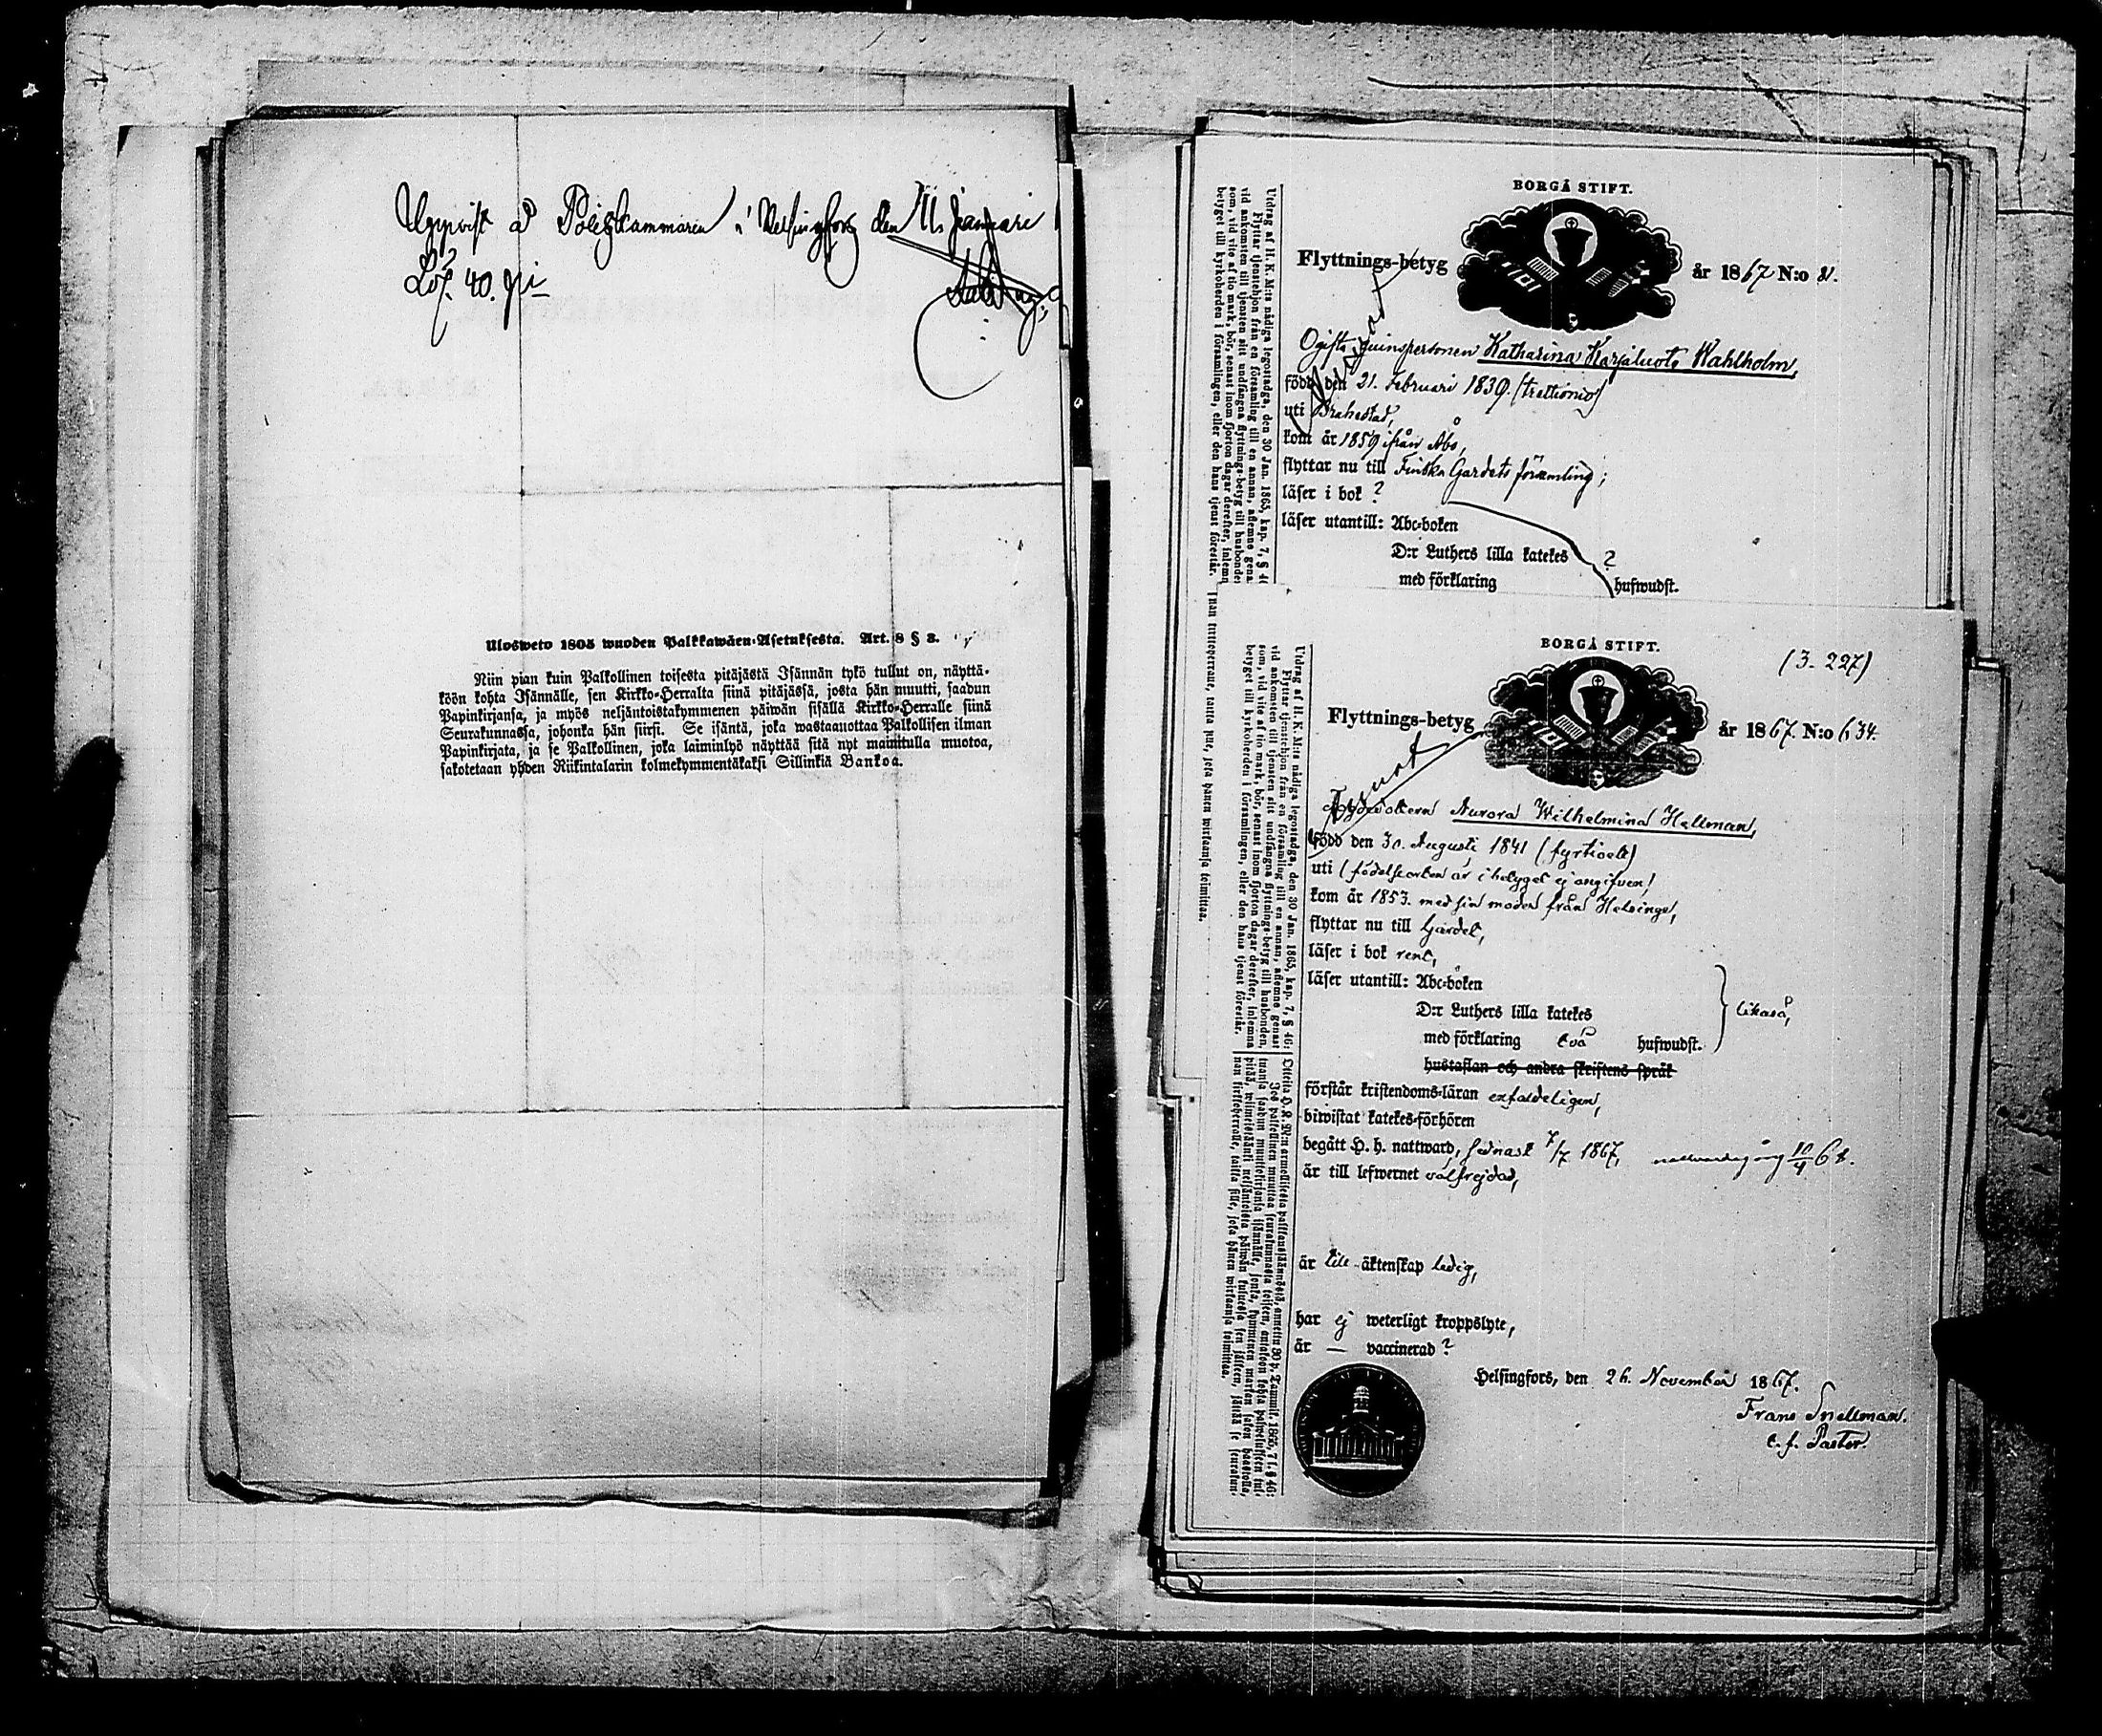 Uppvist å Poliskammaren i Helsingfors den 11 Januari
Lös. 40. pi
Ulosweto 1805 wuoden Palkkawäen-Asetuksesta. Art. 8 § 8.
Niin pian kuin Palkollinen toisesta pitäjästä Isännän tykö tullut on, näyttä-
köön kohta Isännälle, sen Kirkko-Herralta siinä pitäjässä, josta hän muutti, saadun
Papinkirjansa, ja myös neljäntoistakymmenen päiwän sisällä Kirkko-Herralle siinä
Seurakunnassa, johonka hän siirsi. Se isäntä, joka wastaanottaa Palkollisen ilman
Papinkirjata, ja se Palkollinen, joka laiminlyö näyttää sitä nyt mainitulla muotoa,
sakotetaan yhden Riikintalarin kolmekymmentäkaksi Sillinkiä Bankoa.
BORGÅ STIFT.
Flyttnings-betyg år 1867 N:o
Ogifta qvinspersonen Katharina Karjaluoto Wahlholm,
född den 21. Februari 1839. (trettionio)
uti Brahestad,
kom år 1859 ifrån Åbo,
flyttar nu till Finska Gardets församling;
läser i bok ?
läser utantill: Abc-boken
D:r Luthers lilla katekes ?
med förklaring hufwudst.
Utdrag af H. K. M:ts nådiga legostadga, den 30 Jan. 1865, kap. 7, § 46
Flyttar tjenstehjon från en församling till en annan, aflemne gena
vid ankomsten till tjensten sitt undfångna flyttnings-betyg till husbonde
som, vid vite af tio mark, bör, senast inom fjorton dagar derefter, inlemn
betyget till kyrkoherden i församlingen, eller den hans tjenst förestår.
BORGÅ STIFT.
(3-227)
Flyttnings-betyg år 1867. N:o 634.
Aurora Wilhelmina Hellman,
född den 30. Augusti 1841 (fyrtioett)
uti (födelseorten är i betyget ej angifven)
kom år 1853. med sin moder från Helsinge,
flyttar nu till Gardet,
läser i bok rent,
läser utantill: Abc-boken
D:r Luthers lilla katekes
med förklaring två hufwudst. likaså,
hustaflan och andra skriftens språk
förstår kristendoms-läran enfaldeligen,
biwistat katekes-förhören
begått H. h. nattward, senast 7/7 1867, nattvardsgång 10/4 68.
är till lefwernet välfrejdad,
är till äktenskap ledig,
har ej weterligt kroppslyte,
är — vaccinerad ?
Helsingfors, den 26. November 1867.
Frans Snellman.
t. f. Pastor.
Utdrag af H. K. M:ts nådiga legostadga, den 30 Jan. 1865, kap. 7, § 46:
Flyttar tjenstehjon från en församling till en annan, aflemne genast
vid ankomsten till tjensten sitt undfångna flyttnings-betyg till husbonden,
som, vid vite af tio mark, bör, senast inom fjorton dagar derefter, inlemna
betyget till kyrkoherden i församlingen, eller den hans tjenst förestår.